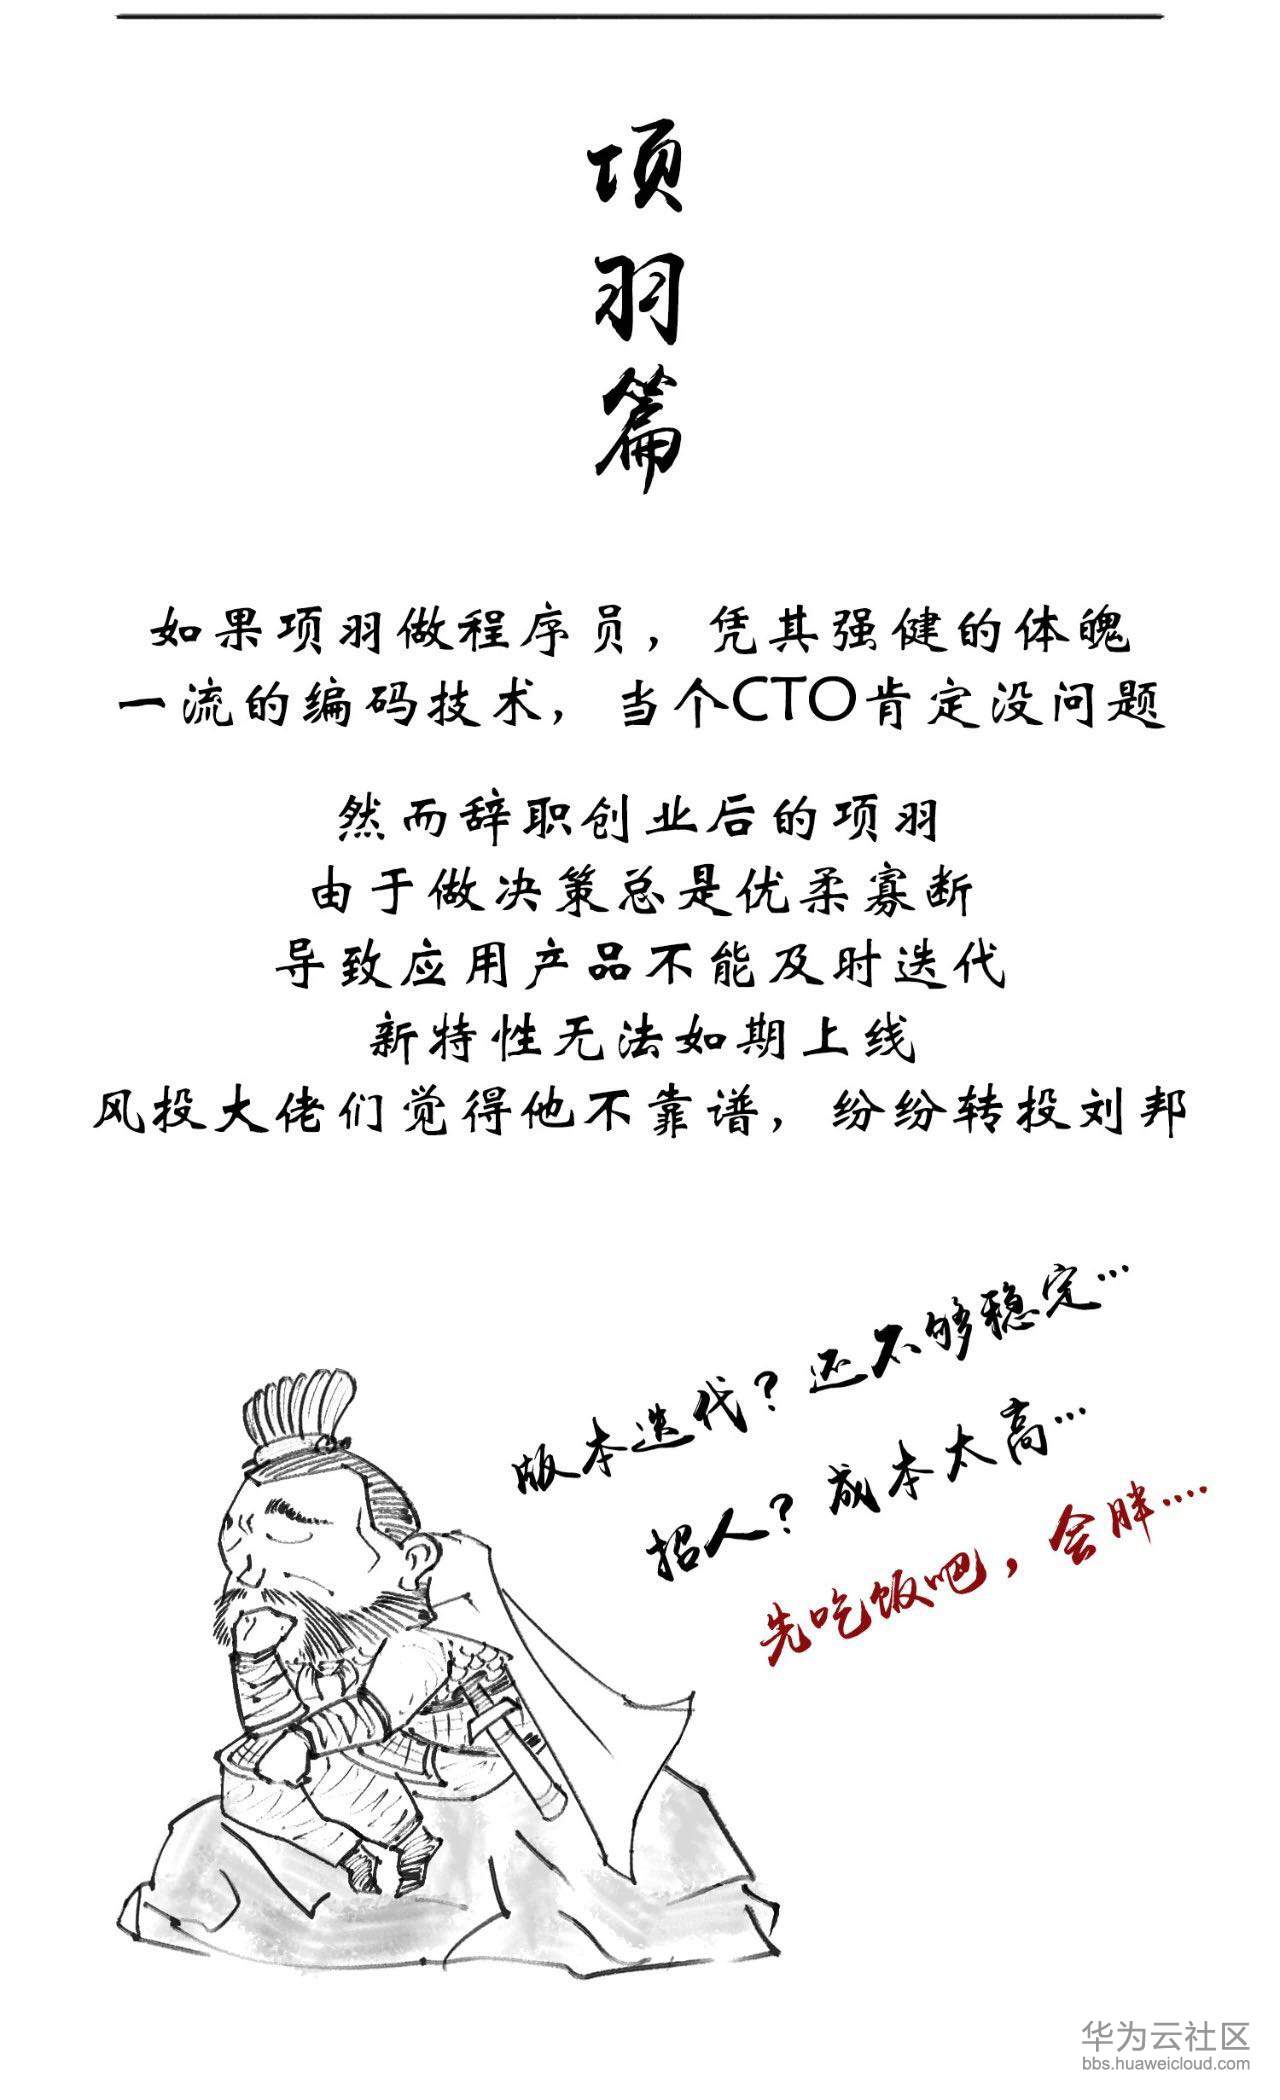 项羽篇
如果项羽做程序员，凭其强健的体魄
一流的编码技术，当个CTO肯定没问题
然而辞职创业后的项羽
由于做决策总是优柔寡断
导致应用产品不能及时迭代
新特性无法如期上线
风投大佬们觉得他不靠谱，纷纷转投刘邦
版本迭代？还不够稳定...
招人？成本太高...
先吃饭吧，会胖....
华为云社区
bbs.huaweicloud.com